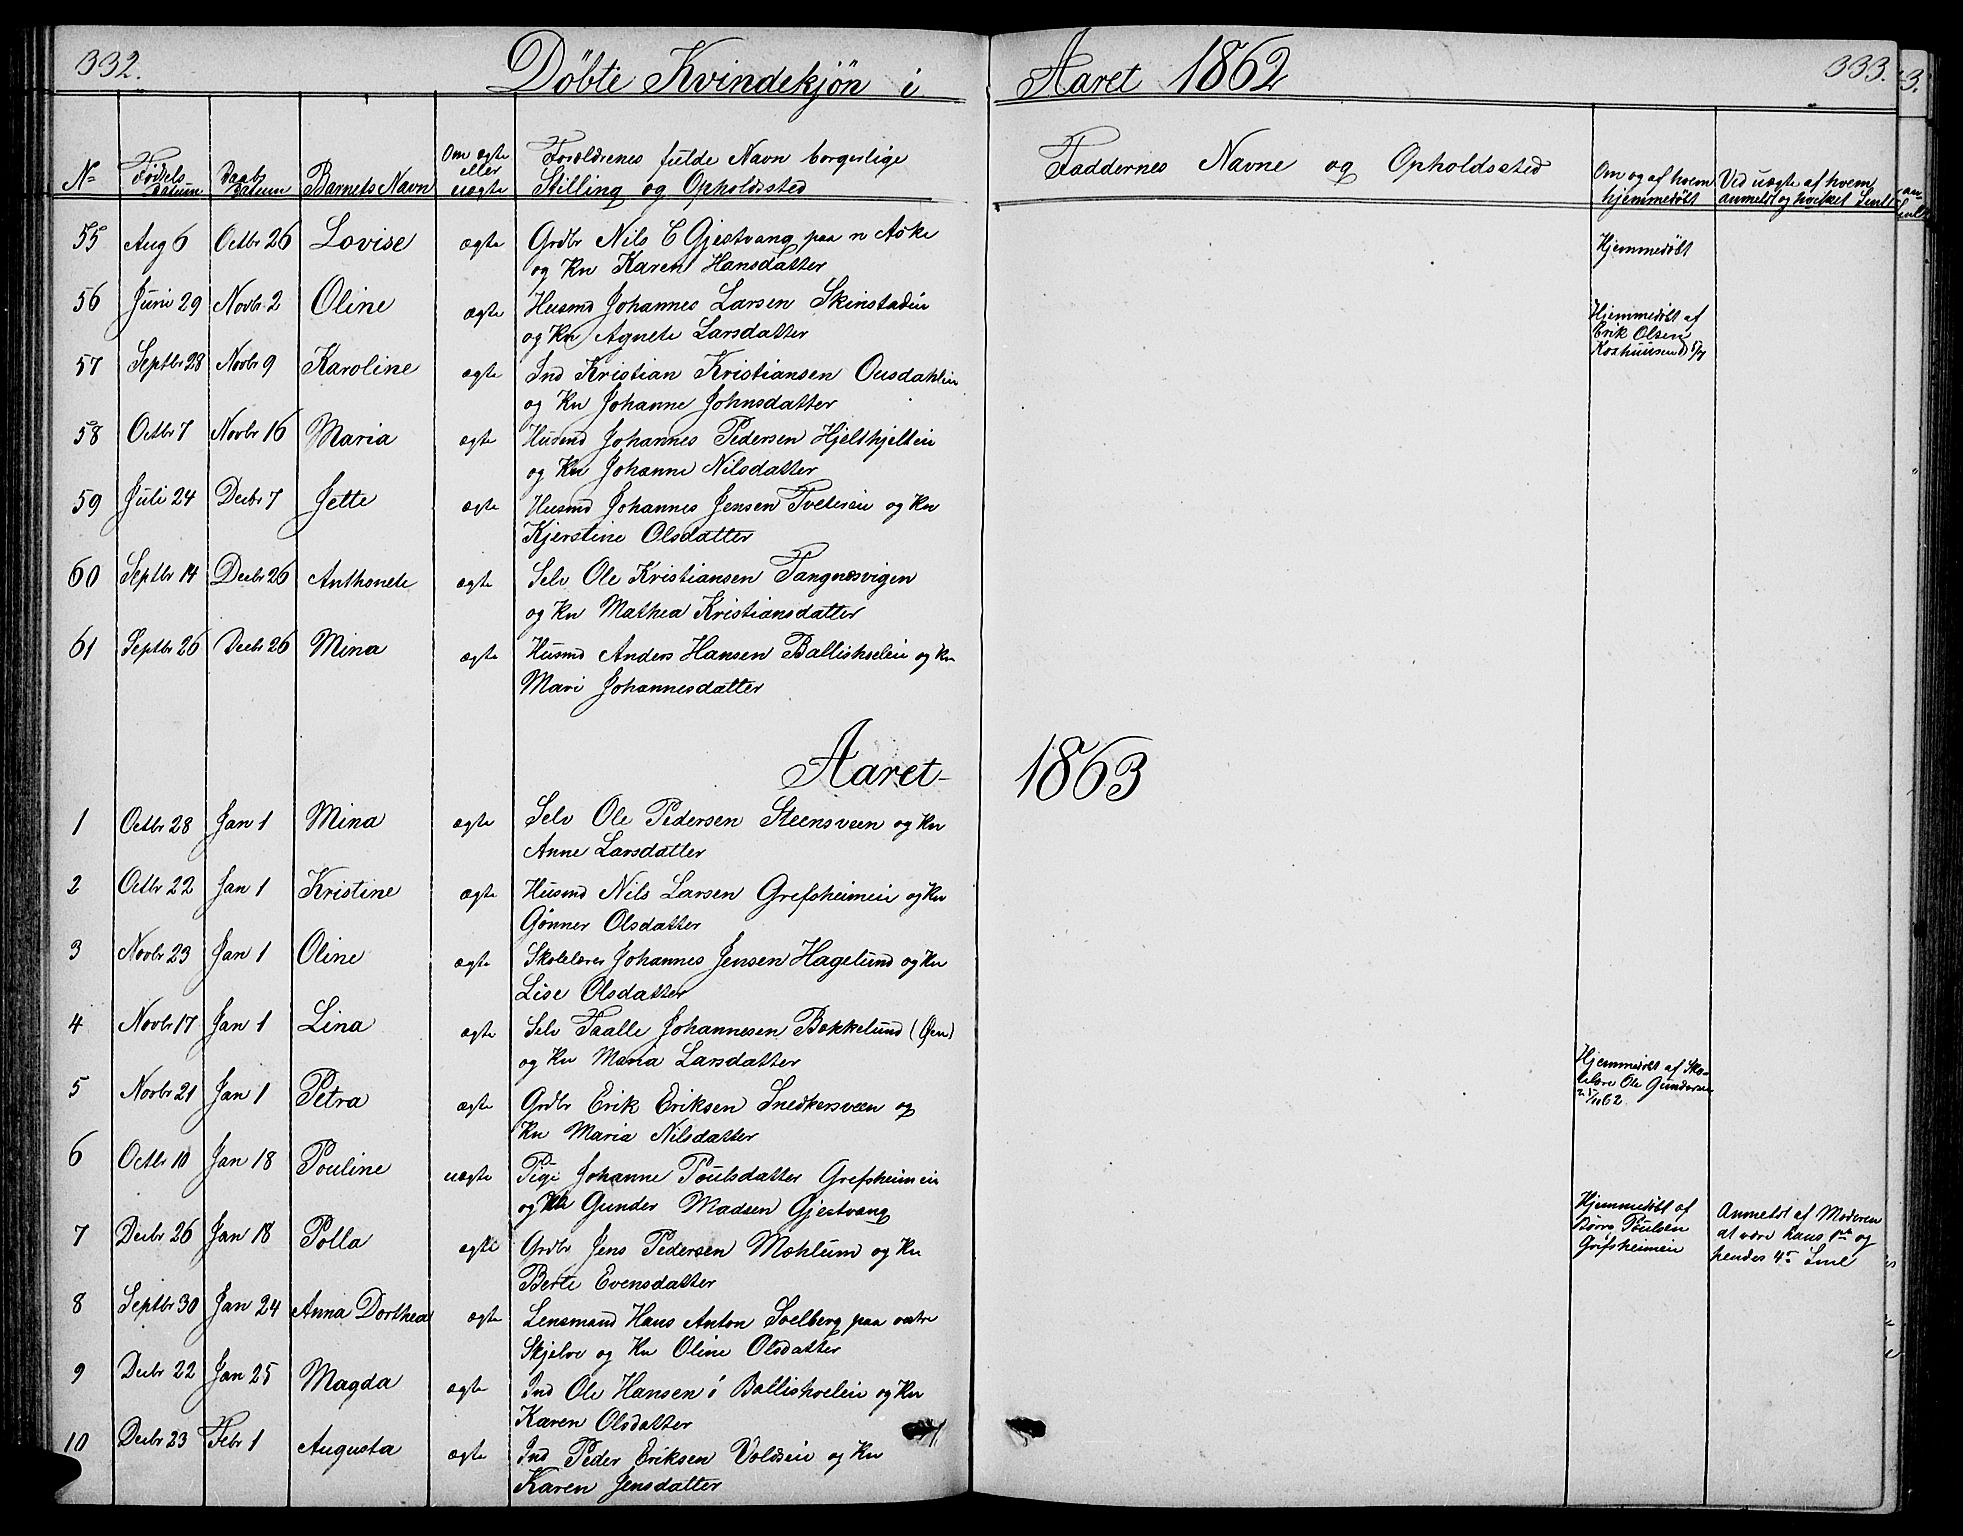 332.
Döbte Kvindekjön i Aaret 1862
333.
No
Födsels Datum
Daabs Datum
Barnets Navn
Om ægte eller uægte
Forældrenes fulde Navn borgerlige Stilling og Opholdssted
Faddernes Navne og Opholdssted
Om og af hvem hjemmedöbt
Ved uægte af hvem anmeldt og hvilket Leil
55 Aug 6 Octbr 26 Lovise ægte Grdbr Nils C Gjestvang paa n Aske
og Kn Karen Hansdatter
Hjemmedöbt
56 Juni 29 Novbr 2 Oline ægte Husmd Johannes Larsen Skinstadeie
og Kn Agnete Larsdatter
Hjemmedöbt af
Erik Olsen
57 Septbr 28 Novbr 9 Karoline ægte Ind Kristian Kristiansen Ousdahleie
og Kn Johanne Johnsdatter
58 Octbr 7 Novbr 16 Maria ægte Husmd Johannes Pedersen Hjelthjelteie
og Kn Johanne Nilsdatter
59 Juli 24 Decbr 7 Jette ægte Husmd Johannes Jensen Tvetereie og Kn
Kjerstine Olsdatter
60 Septbr 14 Decbr 26 Anthonete ægte Selv Ole Kristiansen Tangnesvigen
og Kn Mathea Kristiansdatter
61 Septbr 26 Decbr 26 Mina ægte Husmd Anders Hansen Ballishoeleie og Kn
Mari Johannesdatter
Aaret 1863
1 Octbr 28 Jan 1 Mina ægte Selv Ole Pedersen Steensveen og Kn
Anne Larsdatter
2 Octbr 22 Jan 1 Kristine ægte Husmd Nils Larsen Grefsheimeie og Kn
Gönner Olsdatter
3 Novbr 23 Jan 1 Oline ægte Skolelærer Johannes Jensen Hagelund og Kn
Lise Olsdatter
4 Novbr 17 Jan 1 Lina ægte Selv Taalle Johannesen Bakkelund (Öen)
og Kn Maria Larsdatter
5 Novbr 21 Jan 1 Petra ægte Grdbr Erik Eriksen Snedkersveen og
Kn Maria Nilsdatter
Hjemmedöbt af Sko-
lelære Ole Gundersen
21/11 62.
6 Octbr 10 Jan 18 Pouline uægte Pige Johanne Poulsdatter Grefsheimeie
og Gunder Madsen Gjestvang
Hjemmedöbt af
Börre Poulsen
Grefsheimeie
Anmeldt af Moderen
at være hans 1ste og
hendes 4de Leil
7 Decbr 26 Jan 18 Polla ægte Grdbr Jens Pedersen Mæhlum og Kn
Berte Evensdatter
8 Septbr 30 Jan 24 Anna Dorthea ægte Lensmand Hans Anton Svelberg paa østre
Skjelve og Kn Oline Olsdatter
9 Decbr 22 Jan 25 Magda ægte Ind Ole Hansen i Ballishoeleie og Kn
Karen Olsdatter
10 Decbr 23 Febr 1 Augusta ægte Ind Peder Eriksen Voldseie og Kn
Karen Jensdatter